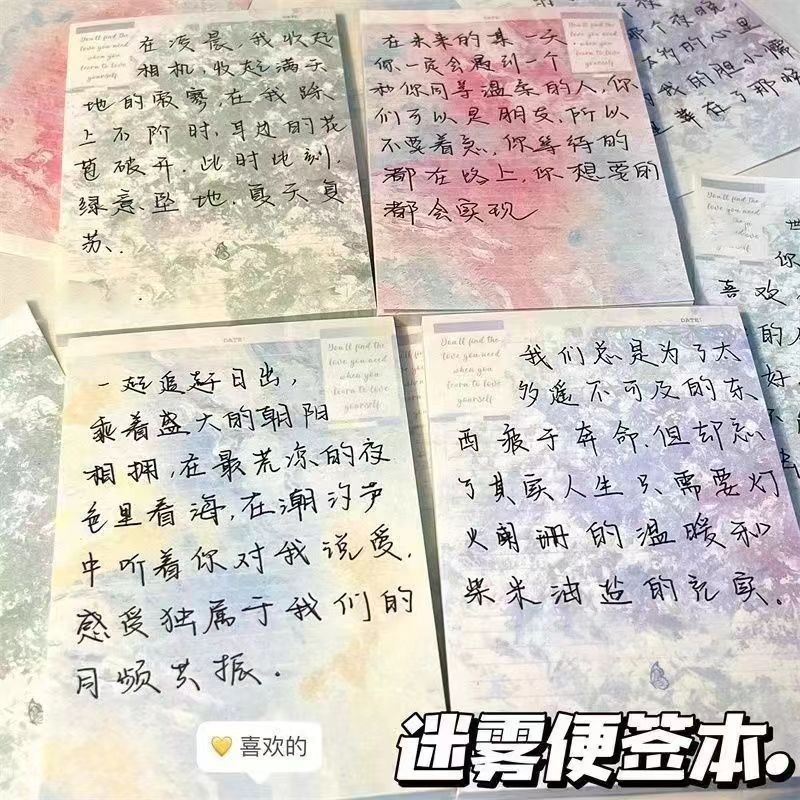 DATE:
You'll find the
love you need
when you
learn to love
yourself
在凌晨,我收起
相机,收起满天
地的寂寥,在我踩
上石阶时,耳边的花
苞破开,此时此刻,
绿意坠地,夏天复
苏、
DATE:
You'll find the
love you need
when you
learn to love
yourself
在未来的某一天
你一定会遇到一个
和你同等温柔的人,你
们可以是朋友,所以
不要着急,你等待的
都在路上,你想要的
都会实现
DATE:
You'll find the
love you need
when you
learn to love
yourself
一起追赶日出,
乘着盛大的朝阳
相拥,在最荒凉的夜
色里看海,在潮汐声
中听着你对我说爱,
感受独属于我们的
月频共振.
DATE:
You'll find the
love you need
when you
learn to love
yourself
我们总是为了太
多遥不可及的东
西疲于奔命,但却忘
了其实人生只需要灯
火阑珊的温暖和
柴米油盐的充实。
You'll find the
love you need
喜欢
的人
好,
喜欢的
迷雾便签本.